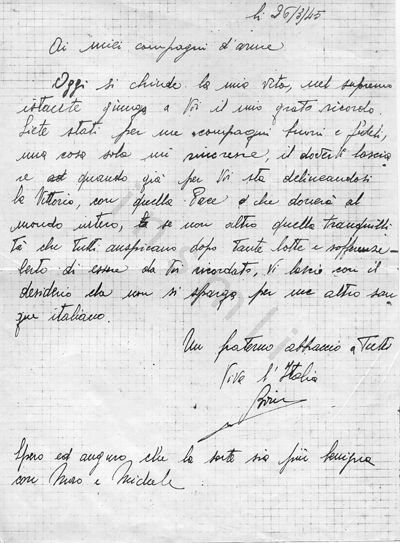 li 26/3/45
Ai miei compagni d'arme
Oggi si chiude la mia vita, nel supremo
istante giunga a Voi il mio grato ricordo.
Siete stati per me compagni buoni e fedeli,
una cosa sola mi rincresce, il dovervi lascia
re quando già per Voi sta delineandosi
la Vittoria, con quella Pace che donerà al
mondo intero, se non altro quella tranquilli
tà che tutti auspicano dopo tante lotte e sofferenze
Certo di essere da Voi ricordato, Vi lascio con il
desiderio che non si sparga per me altro san
gue italiano.
Un fraterno abbraccio a Tutti
Viva l'Italia
Spero ed auguro che la sorte sia più benigna
con e Michele